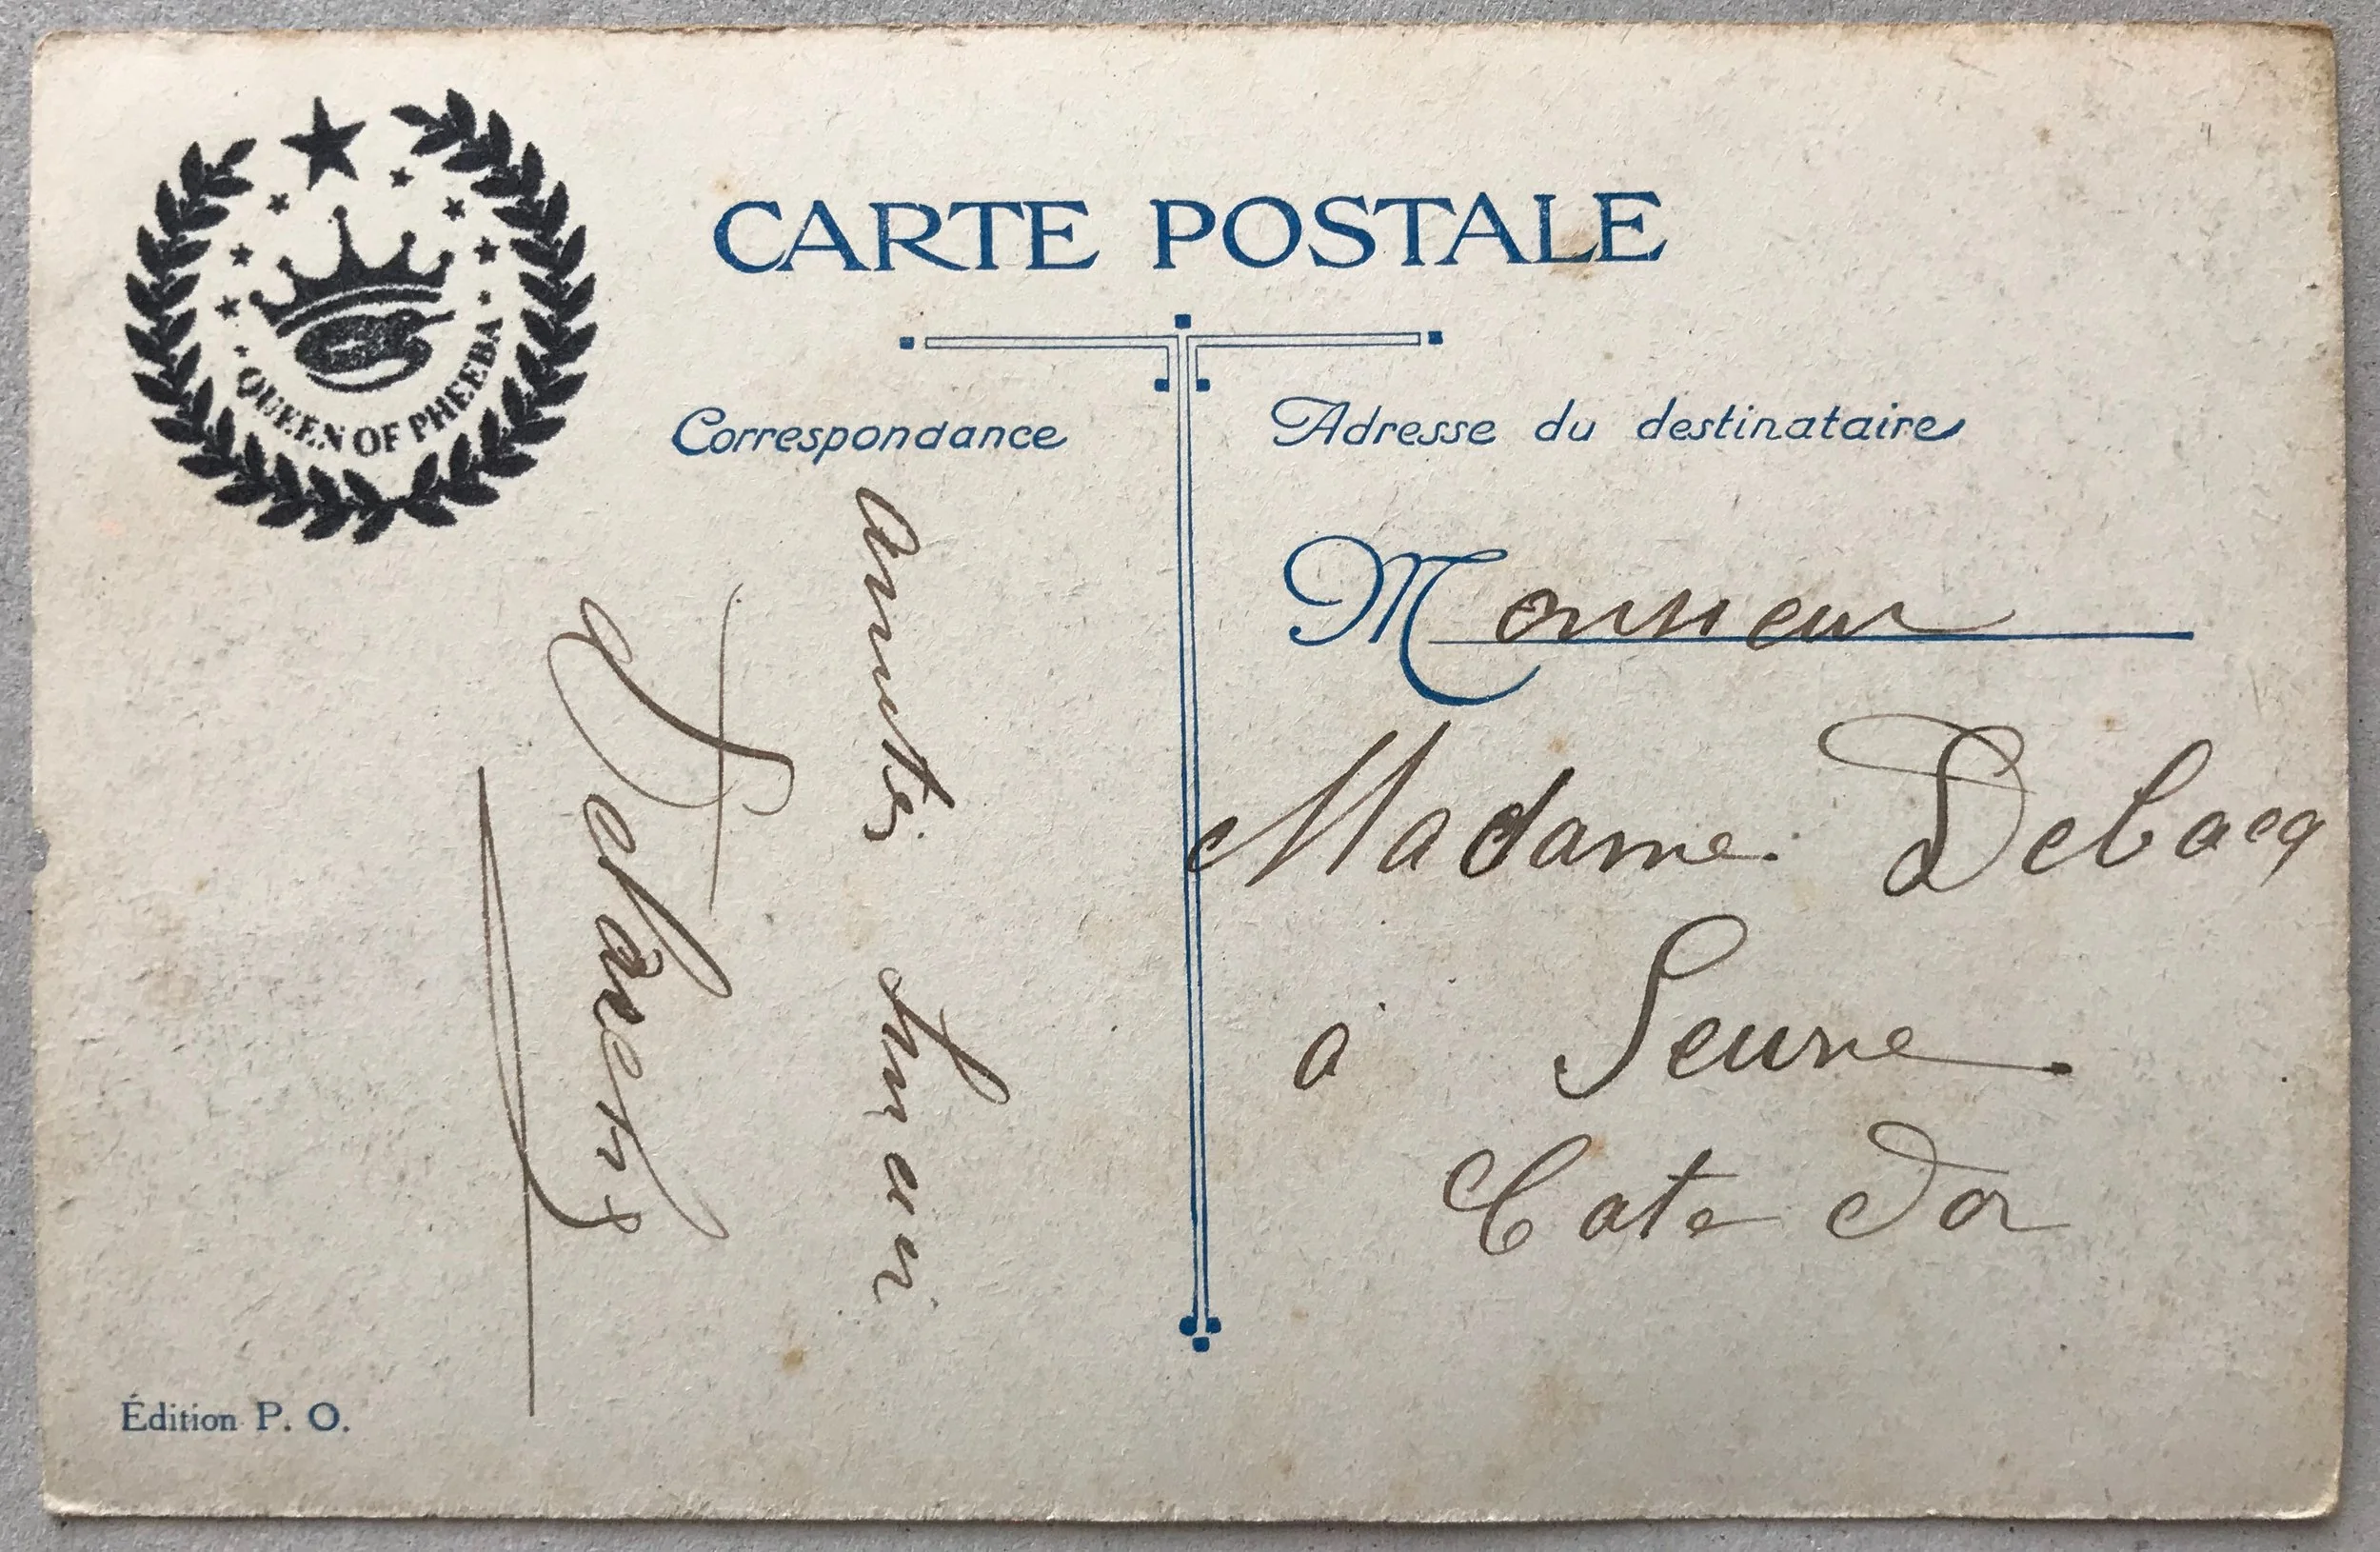 QUEEN OF PHEEBA
CARTE POSTALE
Correspondance
Adresse du destinataire
Monsieur
Madame Debacq
à Seurre
Cote dor
Édition P. O.